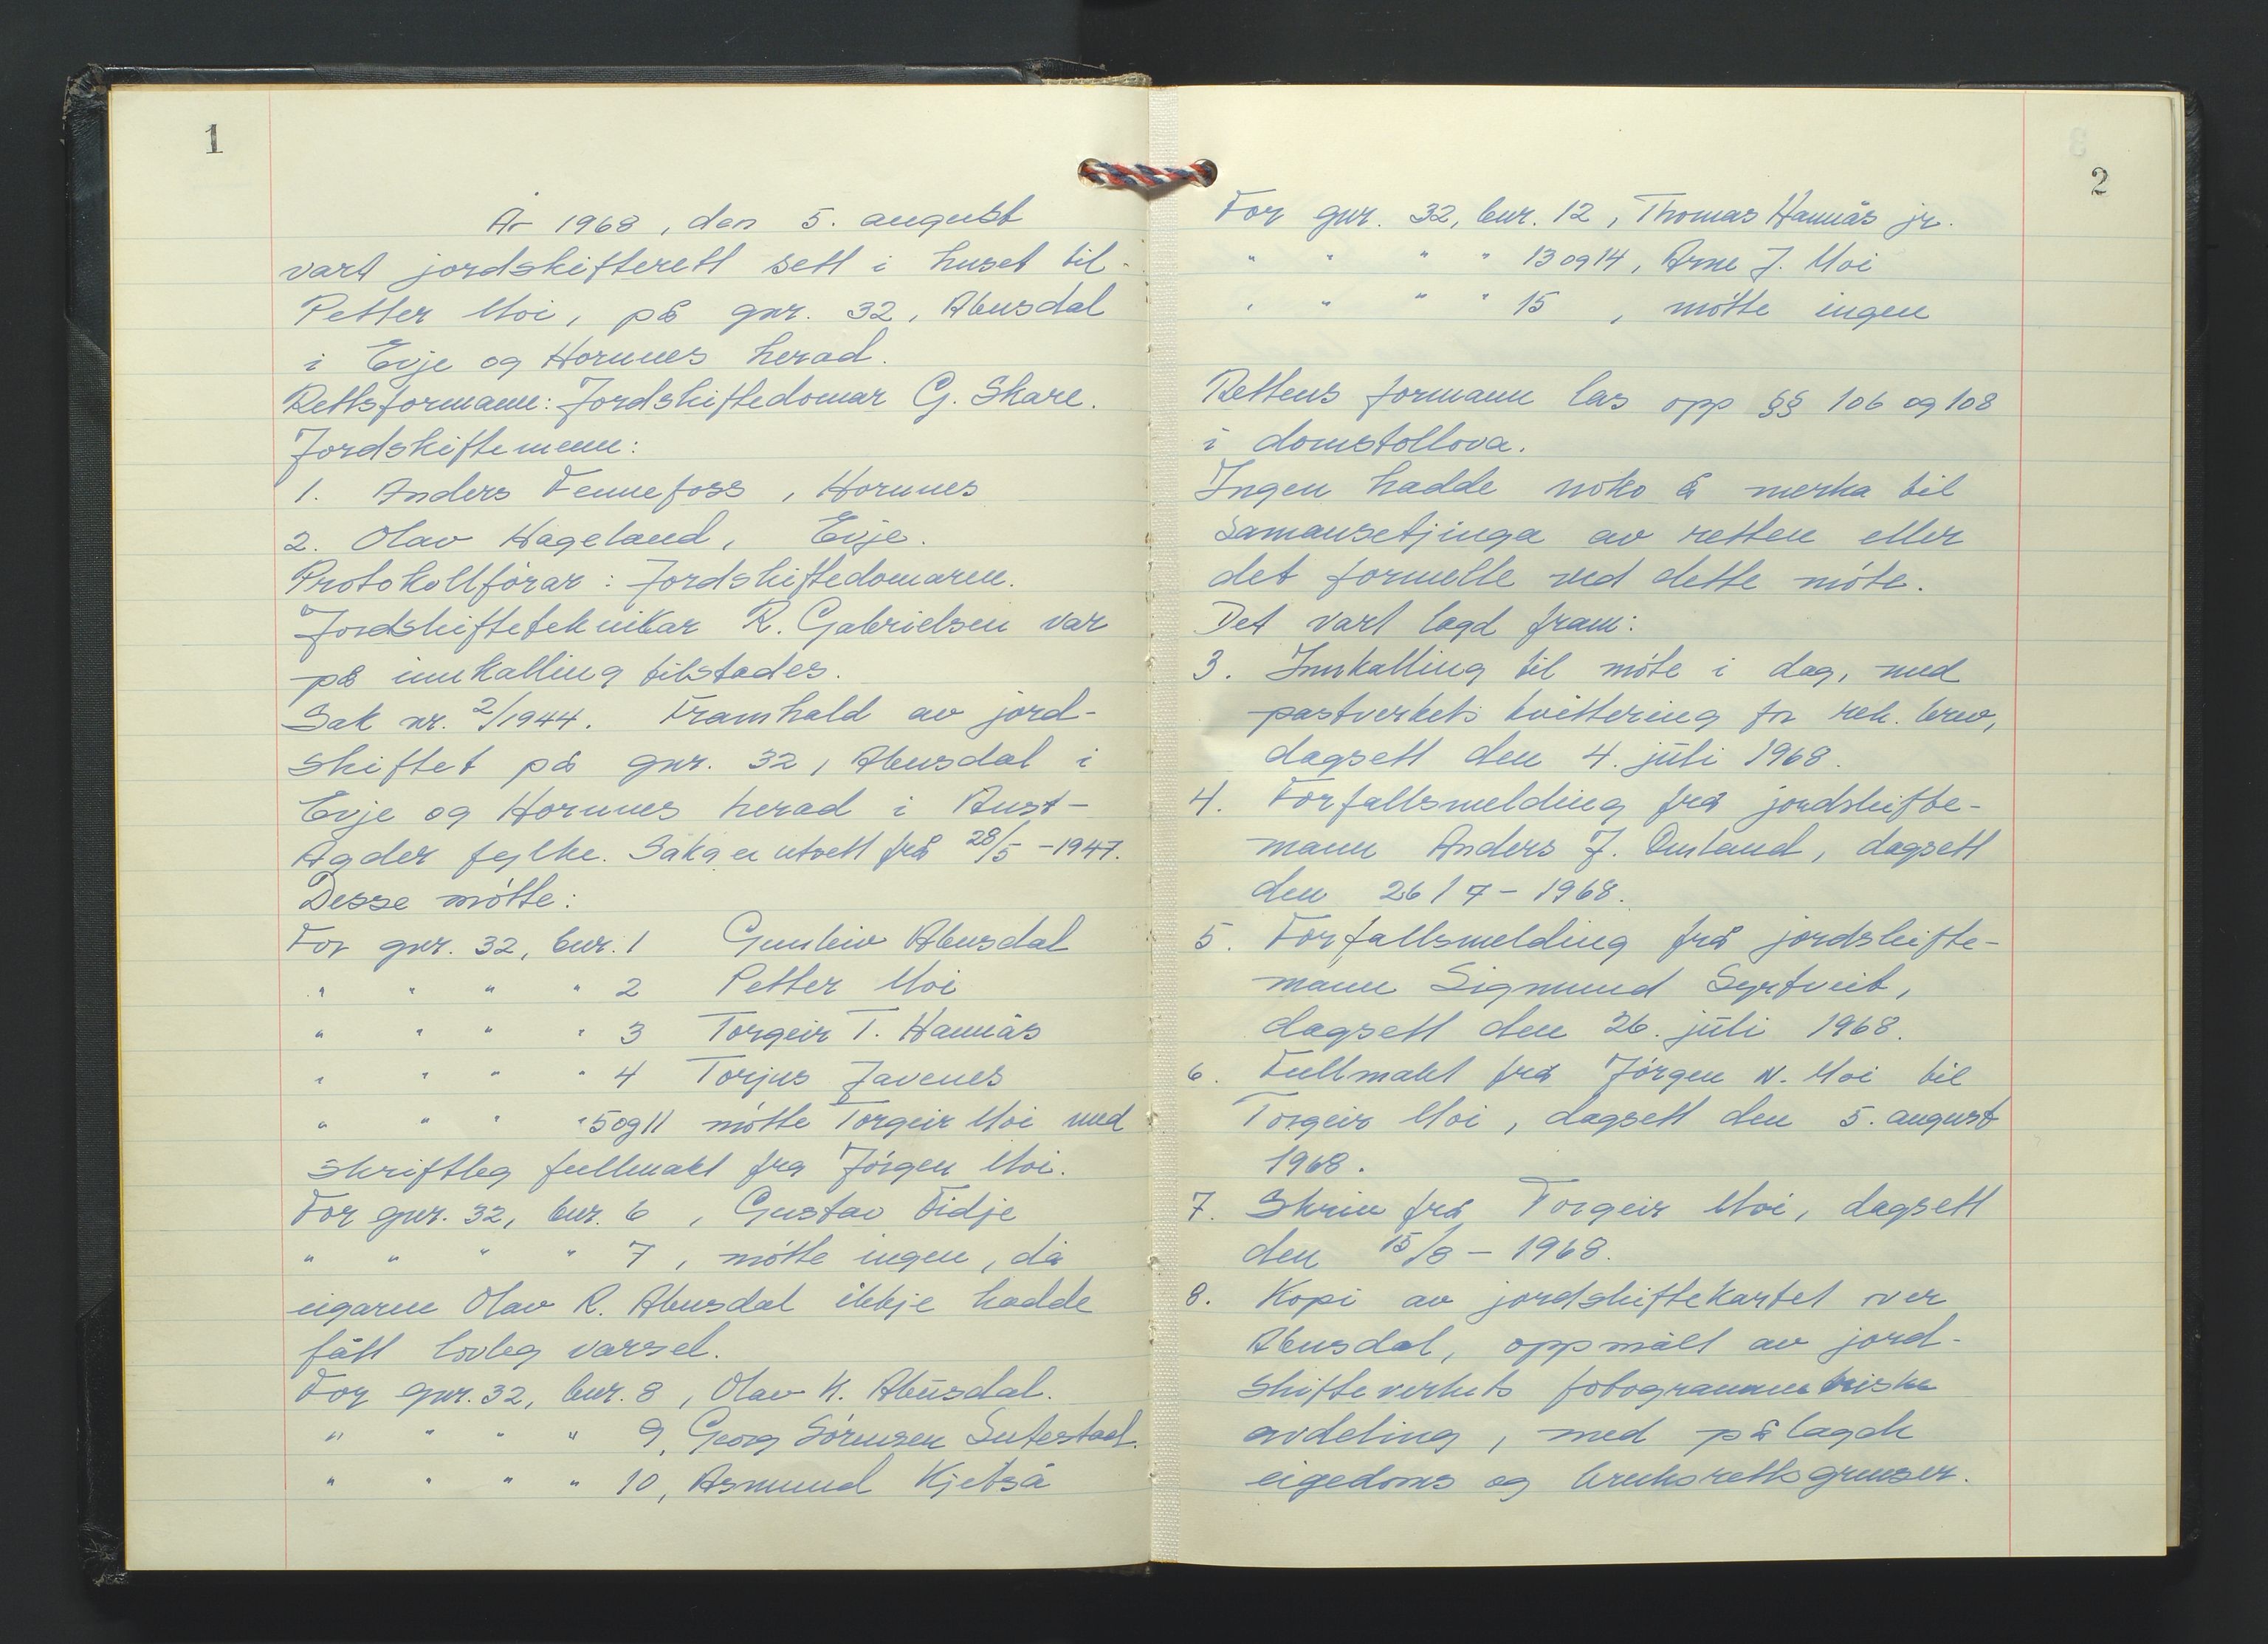 1
År 1968, den 5. august
vart jordskifterett sett i huset til
Petter Moi, på gnr. 32, Abusdal
i Evje og Hornnes herad.
Rettsformann: Jordskiftedomar G. Skare.
Jordskiftemenn:
1. Anders Fennefoss, Hornnes
2. Olav Hageland, Evje.
Protokollförar: Jordskiftedomaren.
Jordskifteteknikar R. Gabrielsen var
på innkalling tilstades.
Sak nr. 2/1944. Framhald av jord-
skiftet på gnr. 32, Abusdal i
Evje og Hornnes herad i Aust-
Agder fylke. Saka er utsett frå 28/5 - 1947.
Desse mötte:
For gnr. 32, bnr. 1 Gunleiv Abusdal
" " " " 2 Petter Moi
" " " " 3 Torgeir T. Hannås
" " " " 4 Torjus Javenes
" " " " 5 og 11 mötte Torgeir Moi med
skriftleg fullmakt fra Jörgen Moi.
For gnr. 32, bnr. 6, Gustav Fidje
" " " " 7, mötte ingen, då
eigaren Olav R. Abusdal ikkje hadde
fått lovleg varsel.
For gnr. 32, bnr. 8, Olav K. Abusdal.
" " " " 9, Georg Sörensen Sutestad.
" " " " 10, Asmund Kjetså
2
For gnr. 32, bnr. 12, Thomas Hannås jr.
" " " " 13 og 14, Arne J. Moi
" " " " 15, mötte ingen
Rettens formann las opp §§ 106 og 108
i domstollova.
Ingen hadde noko å merka til
samansetjinga av retten eller
det formelle ved dette möte.
Det vart lagd fram:
3. Innkalling til möte i dag, med
postverkets kvittering for rek. brev,
dagsett den 4. juli 1968.
4. Forfallsmelding frå jordskifte-
mann Anders J. Omland, dagsett
den 26/7 - 1968.
5. Forfallsmelding frå jordskifte-
mann Sigmund Syrtveit,
dagsett den 26. juli 1968.
6. Fullmakt frå Jörgen N. Moi til
Torgeir Moi, dagsett den 5. august
1968.
7. Skriv frå Torgeir Moi, dagsett
den 15/8 - 1968.
8. Kopi av jordskiftekartet over
Abusdal, oppmålt av jord-
skifteverkets fotogrammetriske
avdeling, med pålagde
eigedoms og bruksrettsgrenser.